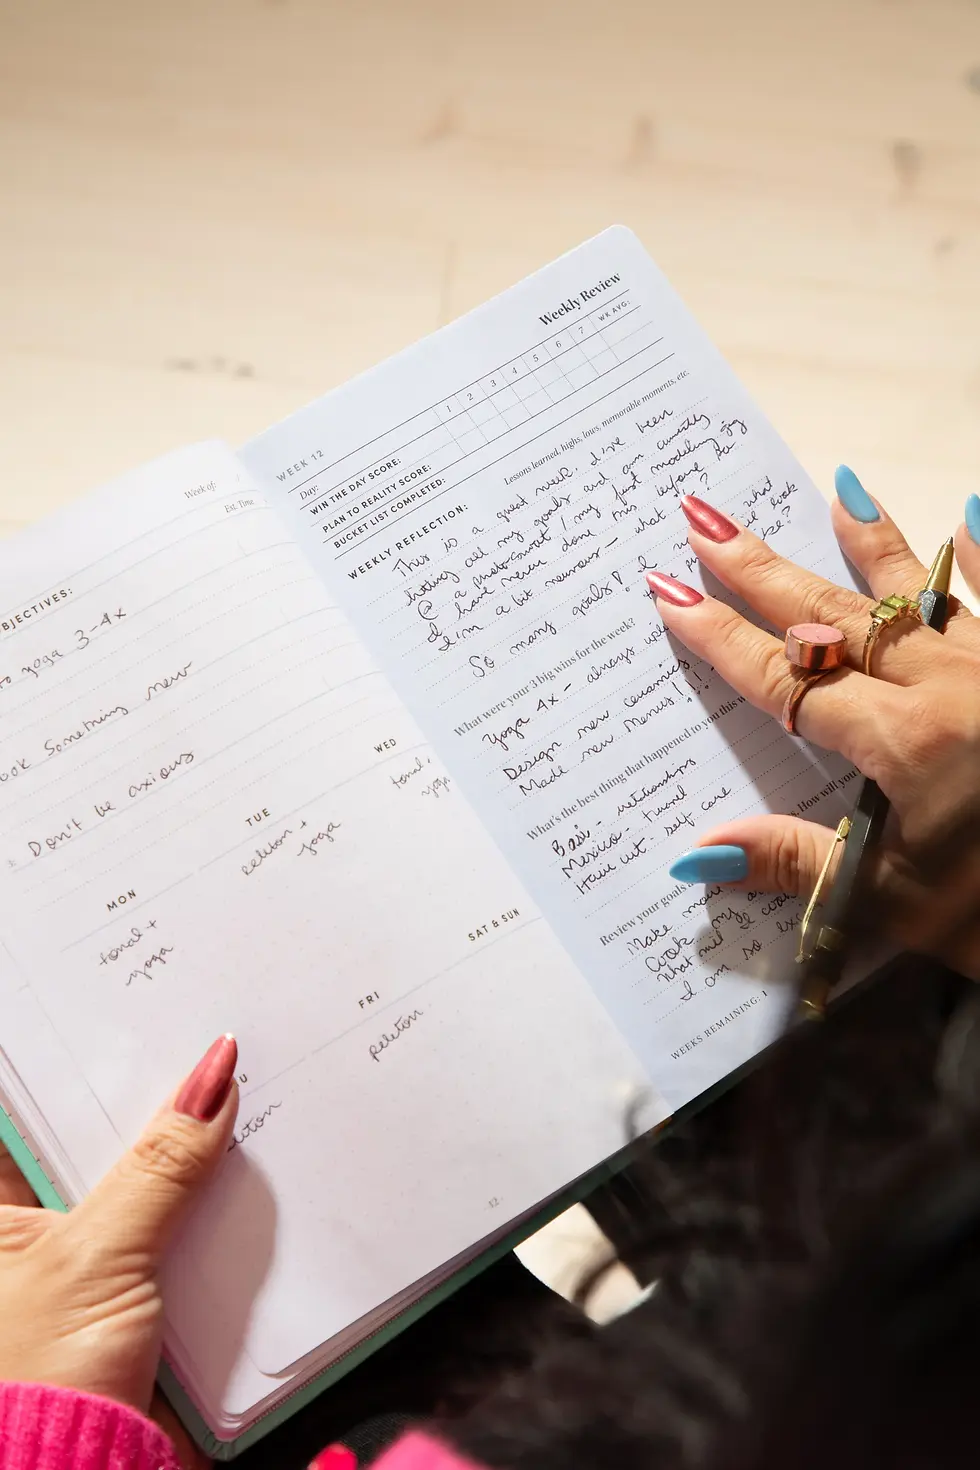 Week of:
Est. Time
BJECTIVES:
to yoga 3-4x
ook Something new
3: Don't be anxious
MON
tonal +
yoga
TUE
peleton +
yoga
WED
tonal,
yoga
U
leton
FRI
peleton
SAT & SUN
42
Weekly Review
WEEK 12
Day:
1 2 3 4 5 6 7 WK AVG:
WIN THE DAY SCORE:
PLAN TO REALITY SCORE:
BUCKET LIST COMPLETED:
WEEKLY REFLECTION:
Lessons learned, highs, lows, memorable moments, etc.
This is a great week. I've been
hitting all my goals and am currently
@ a photoshoot / my first modeling gig
I have never done this before
I'm a bit nervous - what
So many goals! I what
look
What were your 3 big wins for the week?
Yoga 4x - always
Design new ceramics
Made new menus!!!
What's the best thing that happened to you this w
Basi - relationships
Mexico - travel
Hair cut - self care
Review your goals How will you
Make more
Cook my
What I
I am so
WEEKS REMAINING: 1